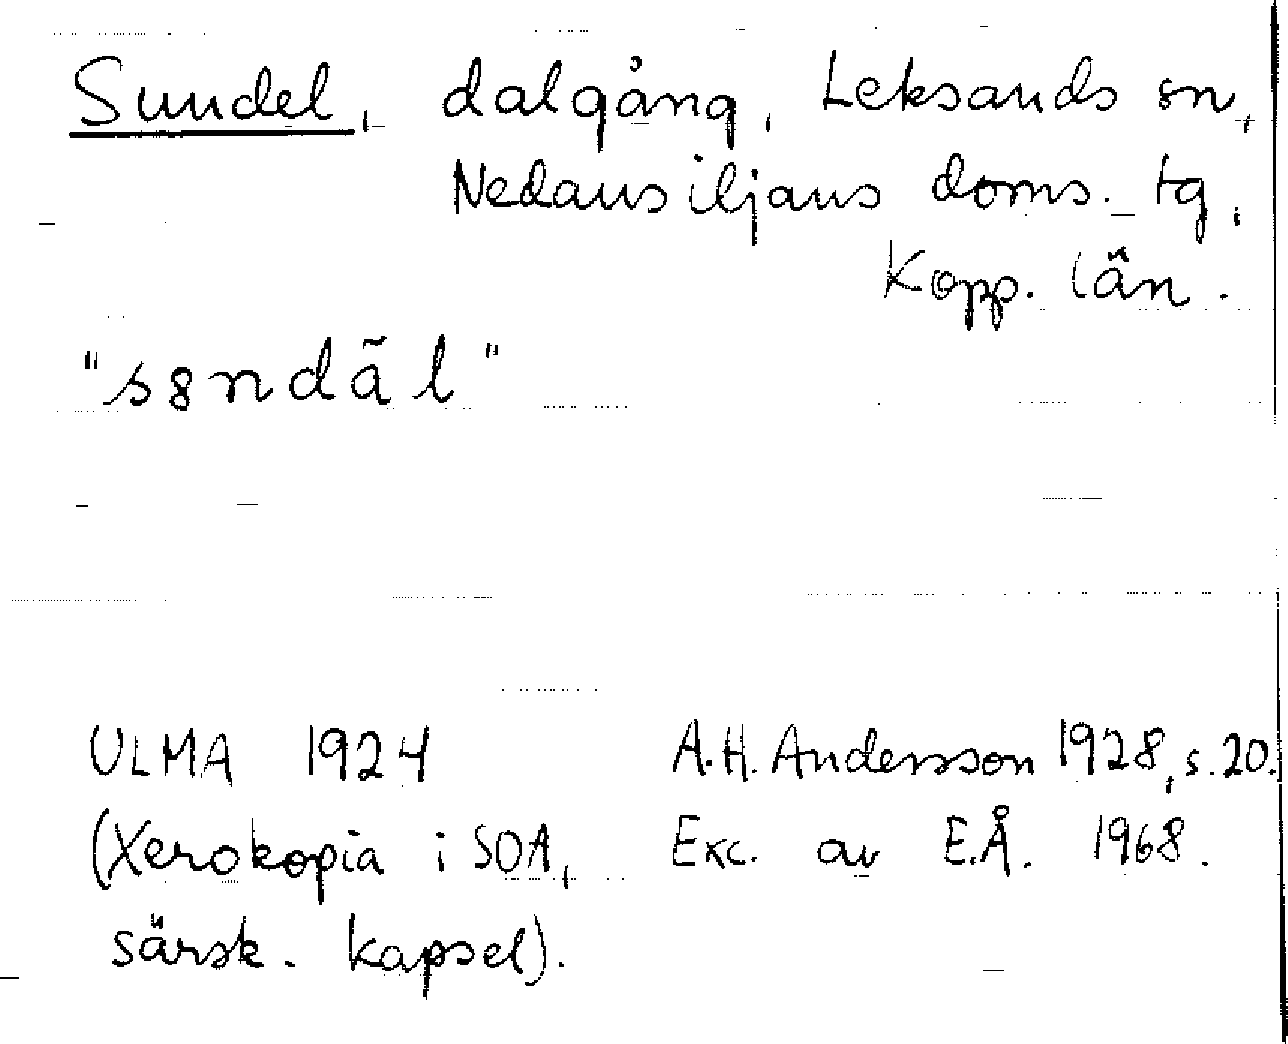 Sundel, dalgång, Leksands sn,
Nedansiljans doms. tg,
Kopp. län.
"s8ndāl"
ULMA 1924 A.H. Andersson 1928, s. 20.
(Xerokopia i SOA, Exc. av E.Å. 1968.
särsk. kapsel).